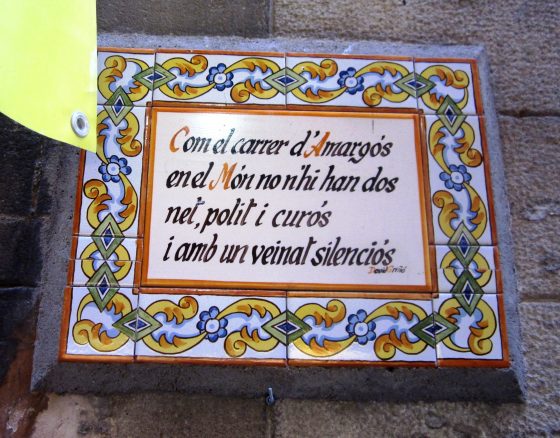 Com el carrer d'Amargós
en el Món no n'hi han dos
net, polit i curós
i amb un veinat silenciós